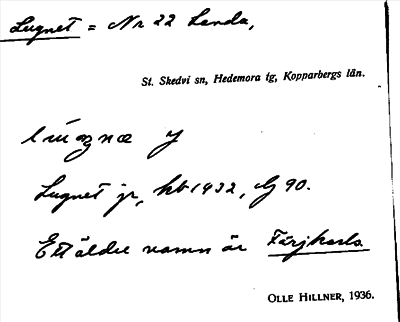 Lugnet = Nr 22 Landa,
St. Skedvi sn, Hedemora tg, Kopparbergs län.
Lugnet gr, kb 1932, G 90.
Ett äldre namn är Färjkarls
OLLE HILLNER, 1936.